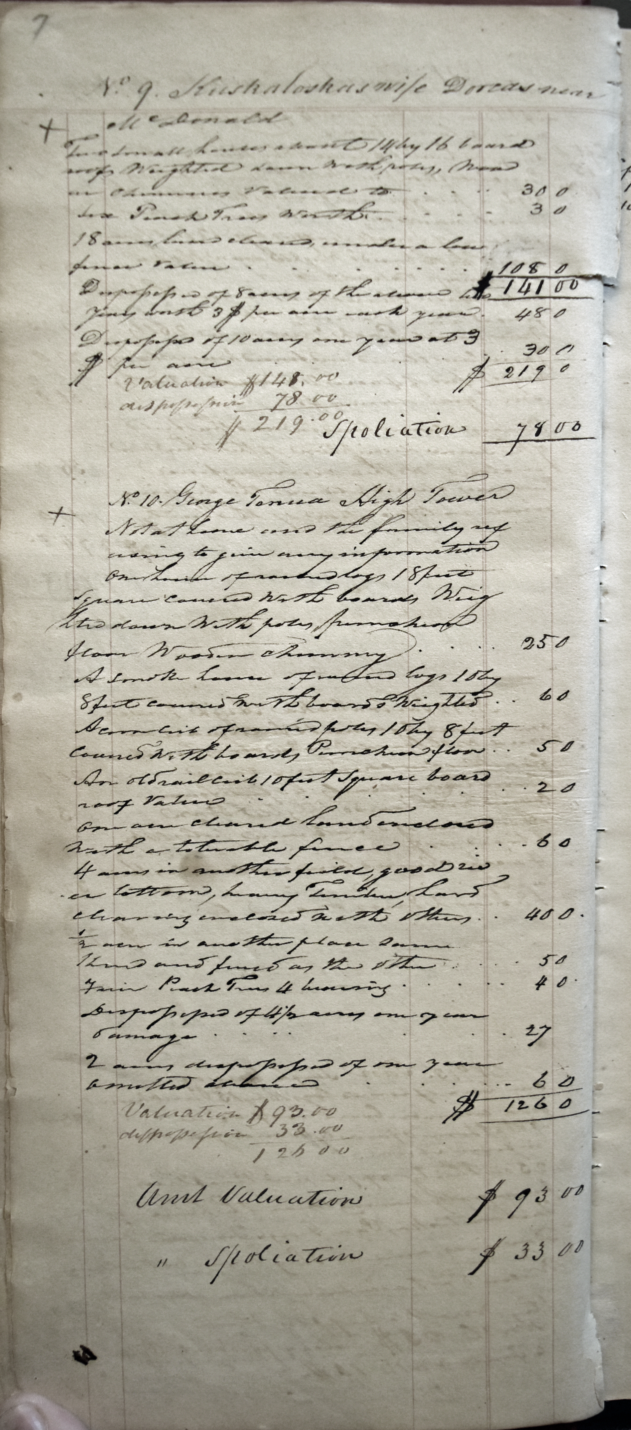 7
No 9. Kuskaloskas wife Dorcas near
+ McDonald
Two small houses about 14 by 16 board
roofs Weighted down with poles, Wood
en Chimneys Valued to 30 0
six Peach Trees Worth 3 0
18 acres land cleared, under a low
fence Value 108 0
Dispossessed of 8 acres of the above $ 141 00
years worth 3 $ per acre each year 48 0
Disposess of 10 acres one year at 3
$ per acre 30 0
Valuation $141.00 $ 219 0
dispossession 78.00
$ 219.00 Spoliation 78 00
+ No 10. George Tenua High Tower
Not at home and the family ref
using to give any information
One house of round logs 18 feet
square covered with boards Weig
hted down With poles, puncheon
floor Wooden Chimney 25 0
A smoke house of round logs 10 by
8 feet covered with boards Weighted 6 0
A corn crib of round poles 10 by 8 feet
covered with boards, Puncheon floor 5 0
An old rail crib 10 feet Square board
roof Value 2 0
One acre cleared land enclosed
with a tolerable fence 6 0
4 acres in another field, good riv
er bottom, heavy Timber, hard
clearing enclosed with others 40 0
1/2 acre in another place same
land and fenced as the other 5 0
Four Peach Trees 4 bearing 4 0
Dispossessed of 4 1/2 acres one year
damage 27
2 acres dispossessed of one year
omitted above 6 0
Valuation $93.00 $ 126 0
dispossession 33.00
126 00
Amt Valuation $ 93 00
" Spoliation $ 33 00